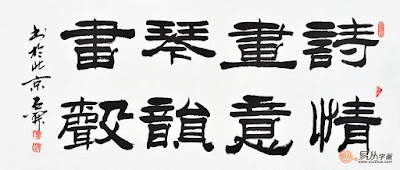 詩情
畫意
琴韻
書聲
書於北京石開
易从字画
www.yizitua.com